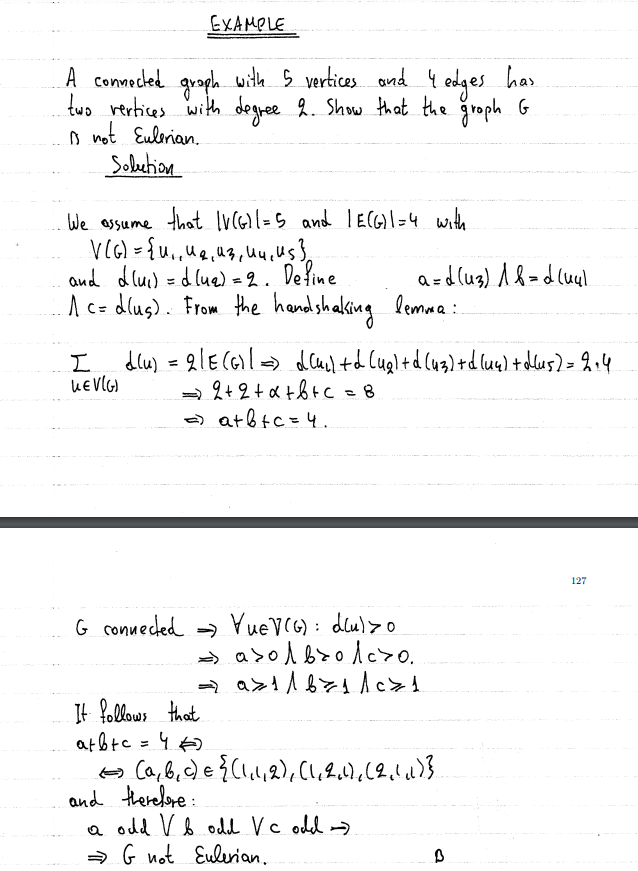 EXAMPLE
A connected graph with 5 vertices and 4 edges has
two vertices with degree 2. Show that the graph G
is not Eulerian.
Solution
We assume that |V(G)|=5 and |E(G)|=4 with
V(G)={u₁,u₂,u₃,u₄,u₅}
and d(u₁)=d(u₂)=2. Define a=d(u₃) ∧ b=d(u₄)
∧ c=d(u₅). From the handshaking lemma:
Σ d(u) = 2|E(G)| ⇒ d(u₁)+d(u₂)+d(u₃)+d(u₄)+d(u₅)=2·4
u∈V(G)
⇒ 2+2+a+b+c = 8
⇒ a+b+c = 4.
127
G connected ⇒ ∀u∈V(G): d(u)>0
⇒ a>0 ∧ b>0 ∧ c>0.
⇒ a≥1 ∧ b≥1 ∧ c≥1
It follows that
a+b+c = 4 ⇔
⇔ (a,b,c)∈{(1,1,2),(1,2,1),(2,1,1)}
and therefore:
a odd ∨ b odd ∨ c odd ⇒
⇒ G not Eulerian. □